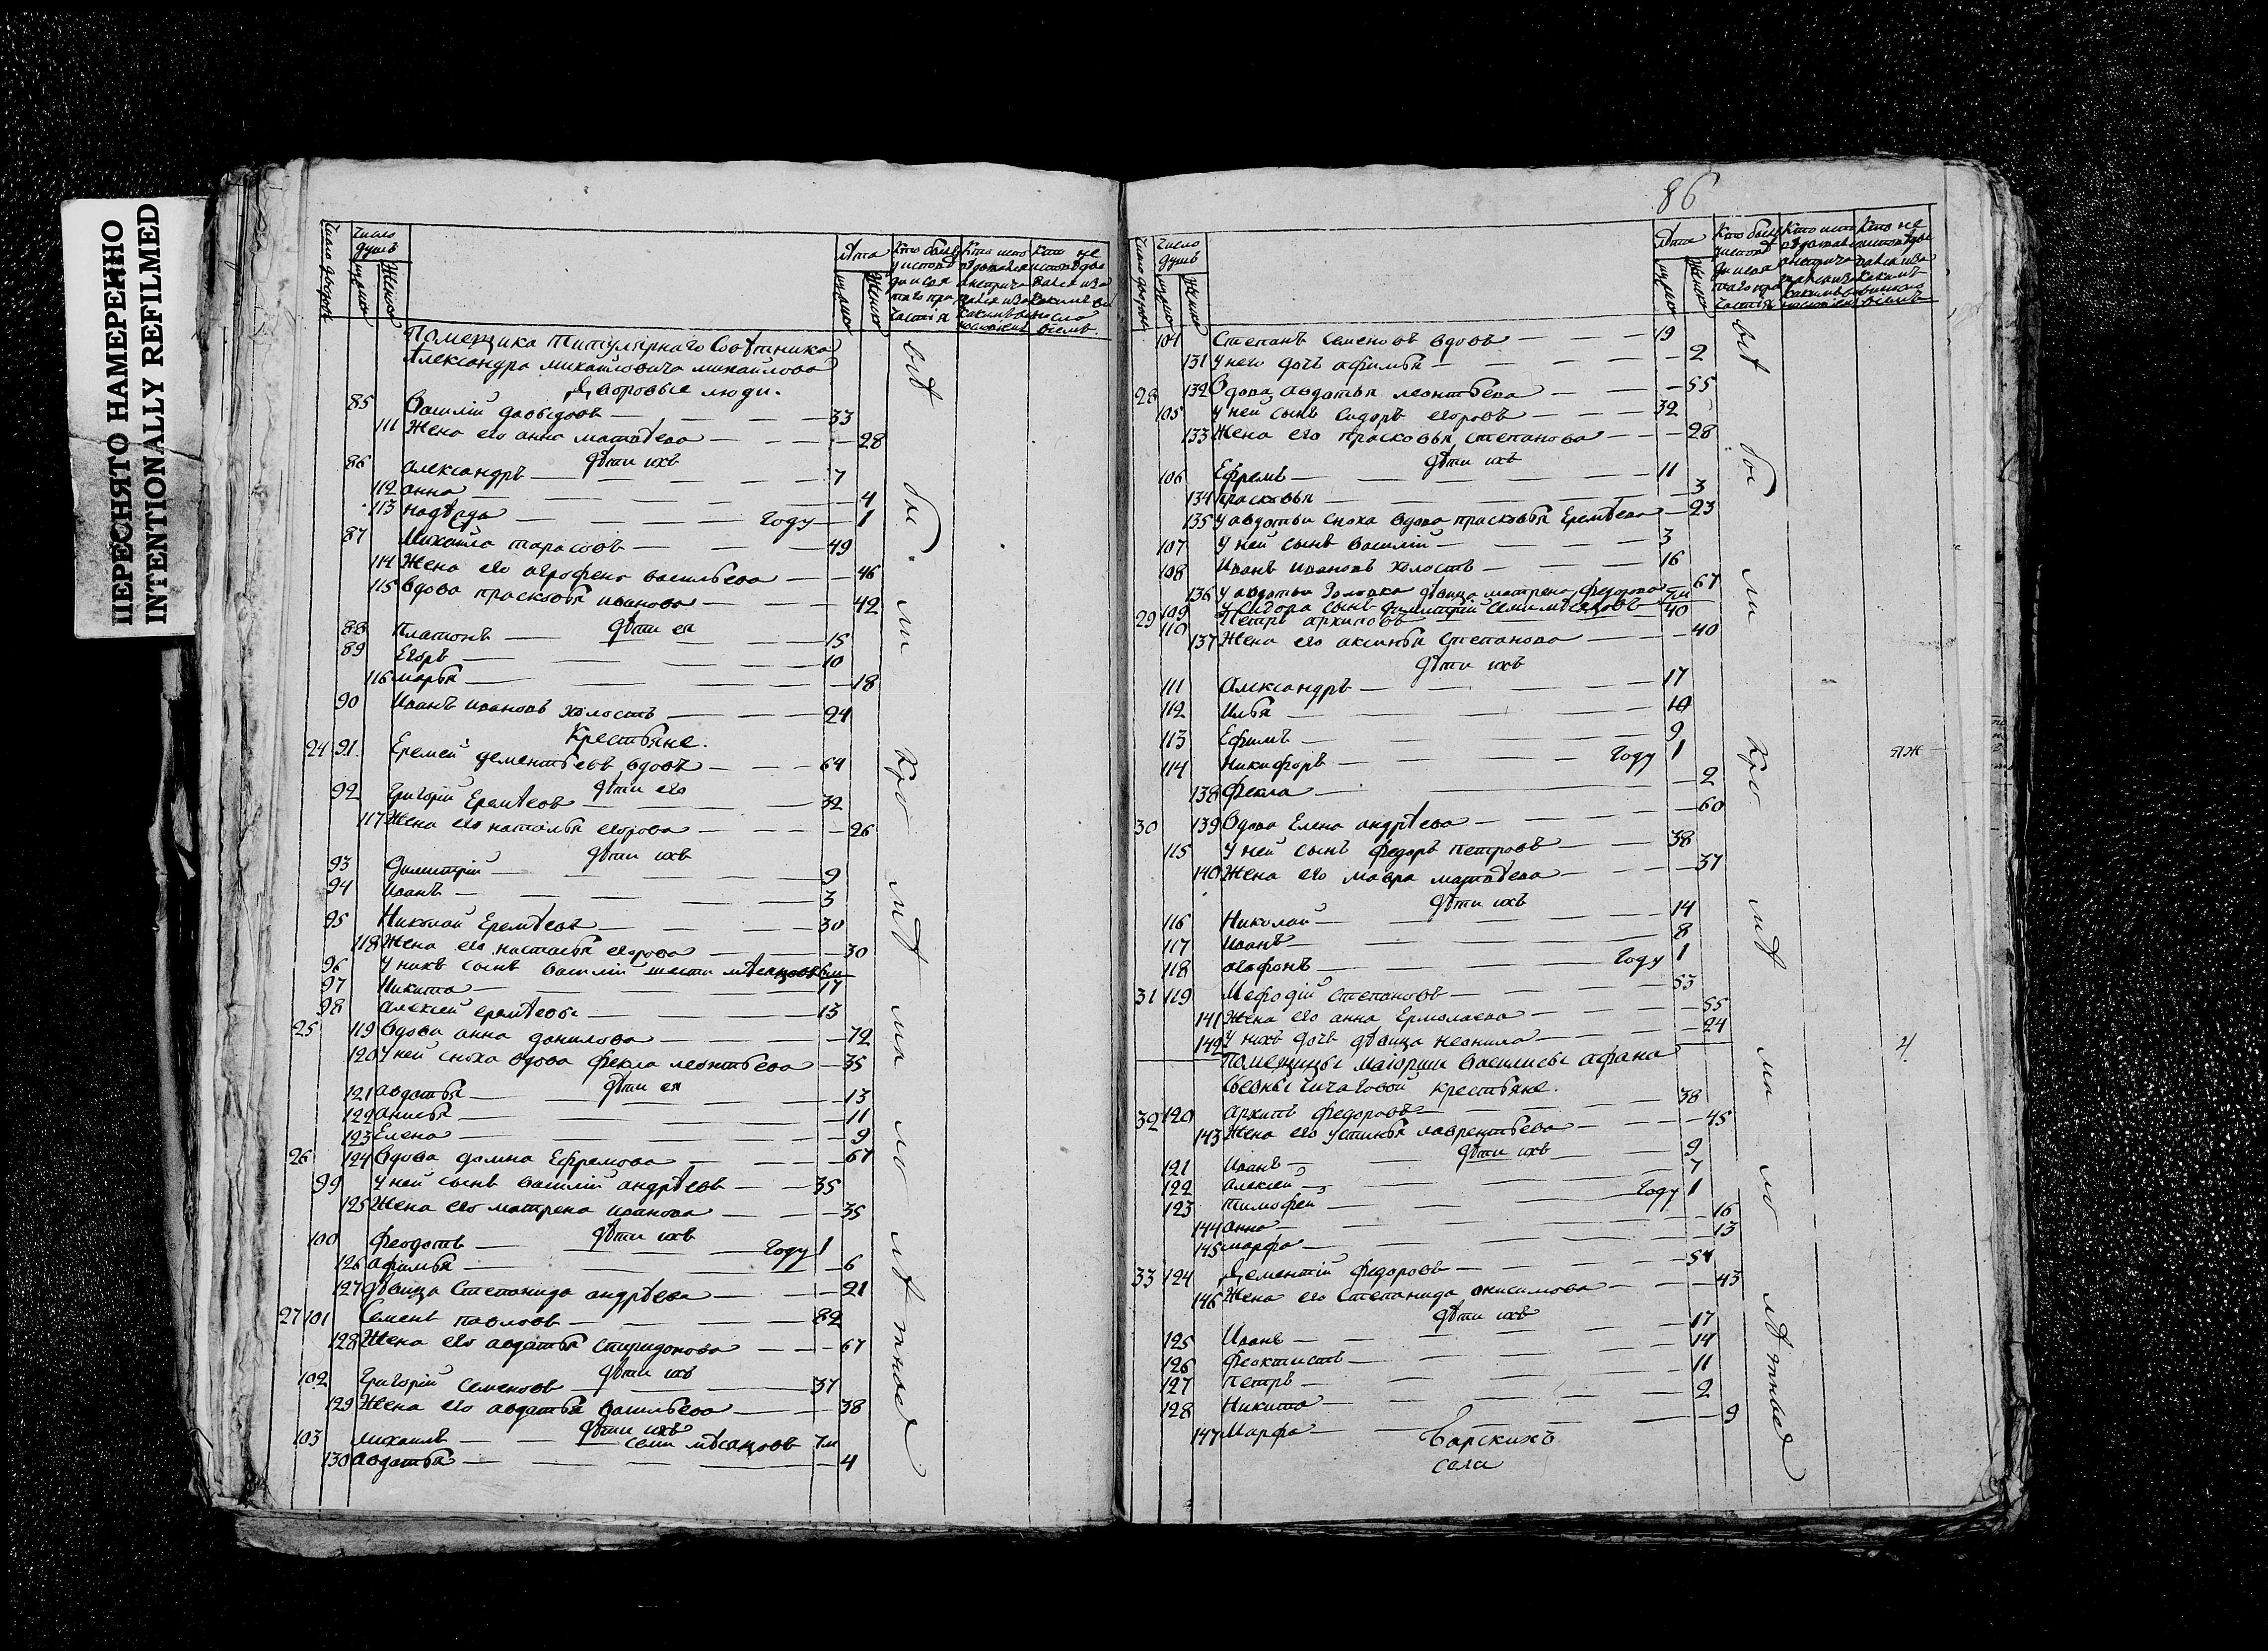 ПЕРЕСНЯТО НАМЕРЕННО
INTENTIONALLY REFILMED
Число дворовъ
Число душъ
мужска
Женска
Лѣта
мужска
Женска
Помещика Титулярнаго Совѣтника
Александра Михайловича Михайлова
Дворовые люди.
85 Василій Давыдовъ 33
111 Жена его анна матвѣева 28
Дѣти ихъ
86 александръ 7
112 анна 4
113 надѣжда Году 1
87 Михайла тарасовъ 49
114 Жена его агрофена васильева 46
115 вдова прасковья иванова 42
Дѣти ея
88 Платонъ 15
89 Егоръ 10
116 марья 18
90 Иванъ ивановъ холостъ 24
Крестьяне.
24 91 Еремей дементьевъ вдовъ 64
Дѣти его
92 Григорій Еремѣевъ 32
117 Жена его наталья егорова 26
Дѣти ихъ
93 Димитрій 9
94 Иванъ 3
95 Николай Еремѣевъ 30
118 Жена его настасья егорова 30
96 У нихъ сынъ василій шести мѣсяцовъ 6м
97 Никита 17
98 алексей еремѣевы 13
25 119 Вдова анна данилова 72
120 У ней сноха вдова фекла леонтьева 35
Дѣти ея
121 авдотья 13
122 анисья 11
123 Елена 9
26 124 Вдова домна Ефремова 67
99 У ней сынъ василій андрѣевъ 35
125 Жена его матрена иванова 35
Дѣти ихъ
100 Феодотъ Году 1
126 афимья 6
127 Дѣвица Степанида андрѣева 21
27 101 Семенъ павловъ 82
128 Жена его авдотья спиридонова 67
Дѣти ихъ
102 Григорій Семеновъ 37
129 Жена его авдотья васильева 38
Дѣти ихъ
103 михаилъ семи мѣсяцовъ 7м
130 авдотья 4
всѣ были кро мѣ ма ло лѣтные
86
Число дворовъ
Число душъ
мужска
Женска
Лѣта
мужска
Женска
104 Степанъ Семеновъ вдовъ 19
131 У него дочь афимья 2
28 132 Вдова авдотья леонтьева 55
105 У ней сынъ Сидоръ егоровъ 32
133 Жена его прасковья степанова 28
Дѣти ихъ
106 Ефремъ 11
134 прасковья 3
135 У авдотьи сноха вдова прасковья Еремѣева 23
107 У ней сынъ василій 3
108 Иванъ Ивановъ холостъ 16
136 У авдотьи золовка дѣвица матрена федорова 67
109 У сидора сынъ димитрій семи мѣсяцовъ 7м
29 110 Петръ архиповъ 40
137 Жена его аксинья Степанова 40
Дѣти ихъ
111 Александръ 17
112 Илья 10
113 Ефимъ 9
114 Никифоръ Году 1
138 Фекла 2
30 139 Вдова Елена андрѣева 60
115 У ней сынъ федоръ Петровъ 38
140 Жена его мавра матвѣева 37
Дѣти ихъ
116 Николай 14
117 Иванъ 8
118 агафонъ Году 1
31 119 Мефодій Степановъ 53
141 Жена его анна Ермолаева 55
142 У нихъ дочь дѣвица неонила 24
Помещицы маіорши Василисы афана
сьевны чичаговой крестьяне.
32 120 Архипъ федоровъ 38
143 Жена его устинья лаврентьева 45
Дѣти ихъ
121 Иванъ 9
122 алексей 7
123 тимофей Году 1
144 анна 16
145 марфа 13
33 124 Дементій Федоровъ 54
146 Жена его Степанида онисимова 43
Дѣти ихъ
125 Иванъ 17
126 Феоктистъ 14
127 Петръ 11
128 Никита 2
147 Марфа 9
всѣ были кро мѣ ма ло лѣтные
Барскихъ
села